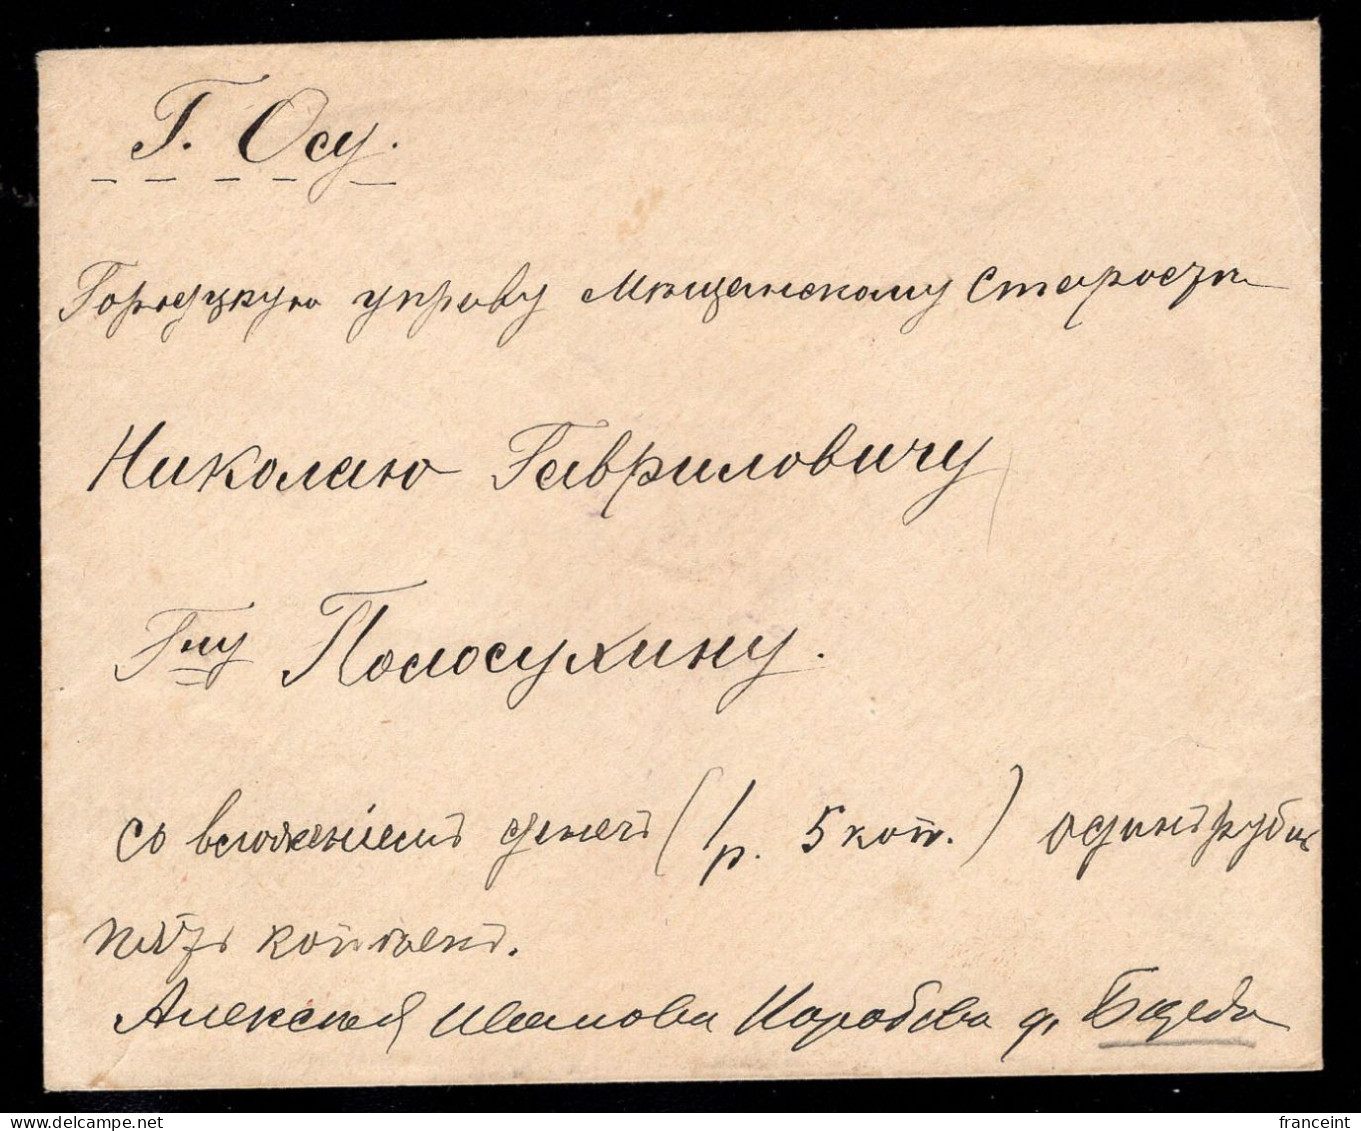 Г. Осу.
Городскую управу Мѣщанскому Старостѣ
Николаю Гавриловичу
Гну Полосухину.
со вложеніемъ денегъ (1 р. 5 коп.) одинъ рубль
пять копѣекъ.
Алексѣя Иванова Коробова д.
franceint